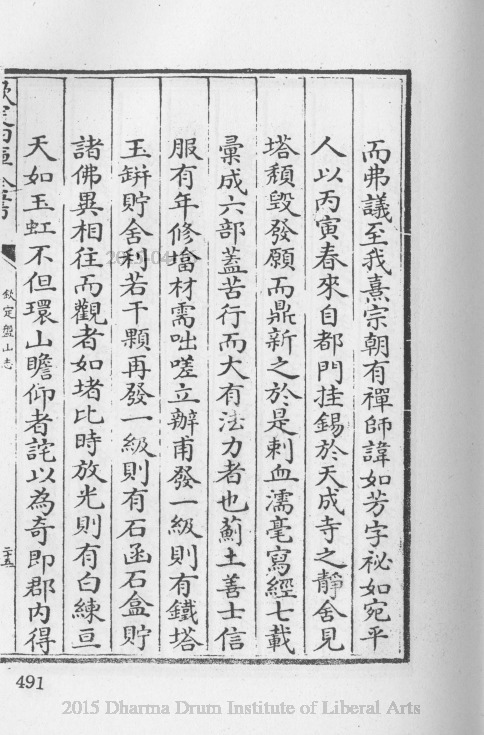 而弗議至我熹宗朝有禪師諱如芳字祕如宛平
人以丙寅春來自都門挂錫於天成寺之靜舍見
塔頹毀發願而鼎新之於是刺血濡毫寫經七載
彙成六部蓋苦行而大有法力者也薊土善士信
服有年修㙮材需咄嗟立辦甫發一級則有鐵塔
玉缾貯舍利若干顆再發一級則有石函石盒貯
諸佛異相往而觀者如堵比時放光則有白練亘
天如玉虹不但環山瞻仰者詫以為奇即郡内得
欽定四庫全書
欽定盤山志
二十五
491
2015 Dharma Drum Institute of Liberal Arts